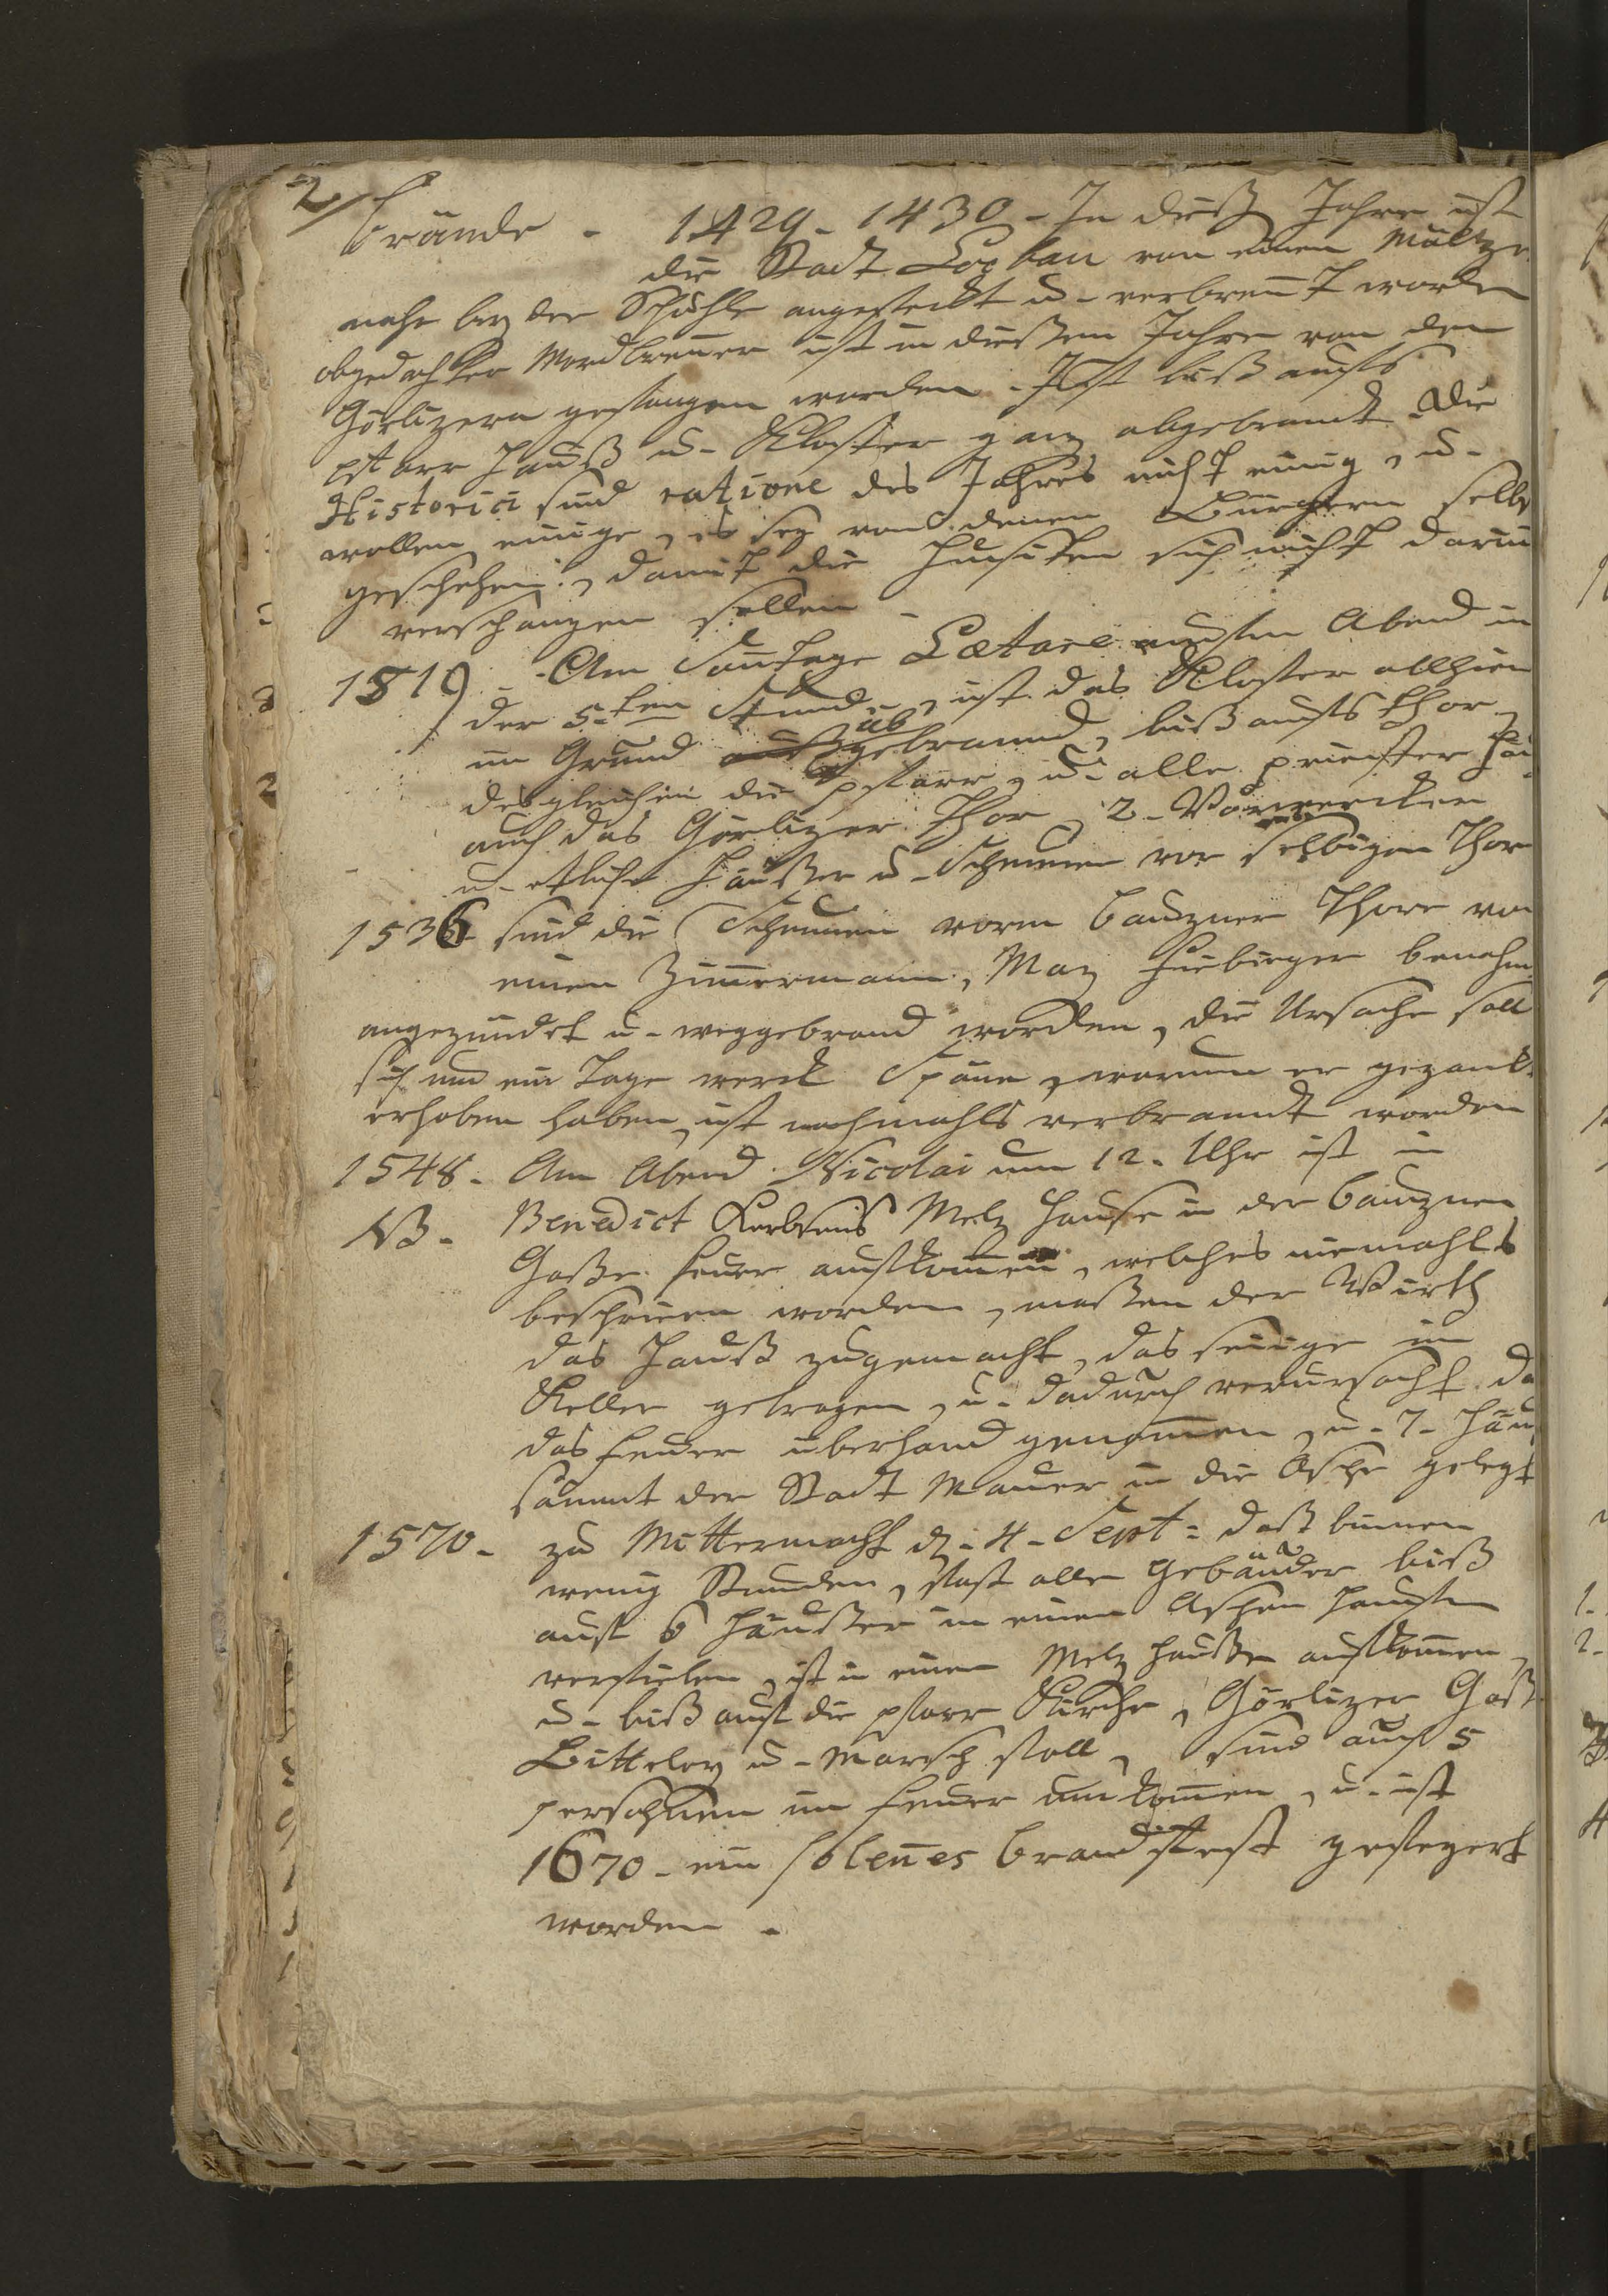 2
Brände - 1429 - 1430 - In dießen Jahre ist
die Stadt Lauban von einen Mältzer
nahe bey der Schuhle angesteckt u - verbrennt worden
obgedachter Mordbrenner ist in dießem Jahre von den
Görlizern gefangen worden - Ist biß aufs
pfarr Hauß u - Kloster ganz abgebrandt - Die
Historici sind ratione des Jahres nicht einig, u -
wollen einige, es sey von denen Bürgern selbs
geschehen, damit die Hußiten sich nicht darin
verschanzen sollen -
1519 - Am Sontage Lætare aufn Abend in
der 5-ten Stund, ist das Kloster allhier
im Grund abgebrannd, biß aufs Chor,
desgleichen die pfarr, u - alle priester Häu
auch das Görlizer Thor, 2 - Vorwercker
u - etliche Häußer u - Scheunen vor selbigen Thor
1536 - sind die Scheunen vorm Bauzner Thore von
einen Zimmermann, Maz Fiebiger benahm
angezündet u - weggebrand worden, die Ursache soll
sich um ein Tage werck Späne, warum er gezanckt
erhoben haben, ist nachmahls verbrandt worden
1548 - Am Abend Nicolai um 12 - Uhr ist in
NB - Benedict Korbreis Melz Hause in der Bauzner
Gaße Feuer auskommen, welches niemahls
beschrieen worden, maßen der Wirth
das Hauß zugemacht, das seinige im
Keller getragen, u - dadurch verursacht da
das Feuer überhand genommen, u - 7 - Häuß
sammt der Stadt Mauer in die Asche gelegt
1570 - zu Mitternacht d - 4 - Sept: daß binnen
wenig Stunden, fast alle Gebäuder biß
auf 6 Häußer in einen Aschen Haufen
verfielen, ist in einen Melz Hauße auskommen,
u - biß auf die pfarr Kirche, Görlizer Gaß
Bitteley u - Marsch stall, sind auch 5
persohnen im Feuer umkommen, u - ist
1670 - ein solennes Brandfest gefeyert
worden -